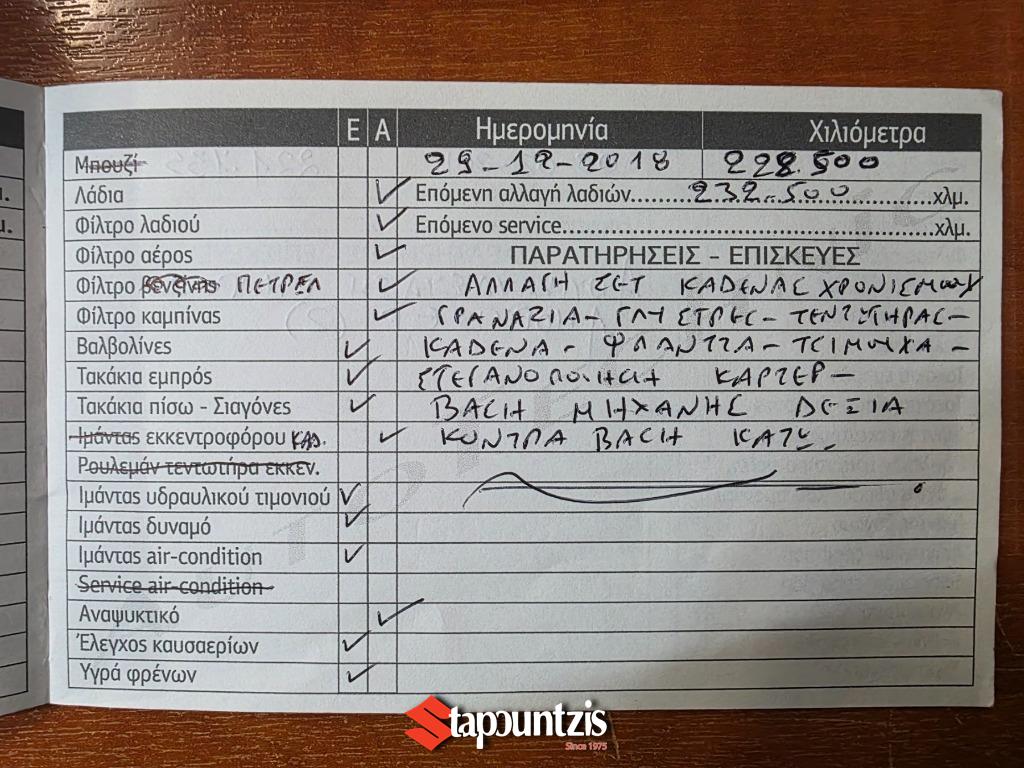 Ε Α Ημερομηνία Χιλιόμετρα
Μπουζί 29-12-2018 228.500
Λάδια ✓ Επόμενη αλλαγή λαδιών 232.500 χλμ.
Φίλτρο λαδιού ✓ Επόμενο service χλμ.
Φίλτρο αέρος ✓ ΠΑΡΑΤΗΡΗΣΕΙΣ - ΕΠΙΣΚΕΥΕΣ
Φίλτρο βενζίνης ΠΕΤΡΕΛ ✓ ΑΛΛΑΓΗ ΣΕΤ ΚΑΔΕΝΑΣ ΧΡΟΝΙΣΜΟΥ
Φίλτρο καμπίνας ✓ ΓΡΑΝΑΖΙΑ - ΓΛΗΣΤΡΕΣ - ΤΕΝΤΩΤΗΡΑΣ -
Βαλβολίνες ✓ ΚΑΔΕΝΑ - ΦΛΑΝΤΖΑ - ΤΣΙΜΟΥΧΑ -
Τακάκια εμπρός ✓ ΣΤΕΓΑΝΟΠΟΙΗΣΗ ΚΑΡΤΕΡ -
Τακάκια πίσω - Σιαγόνες ✓ ΒΑΣΗ ΜΗΧΑΝΗΣ ΔΕΞΙΑ
Ιμάντας εκκεντροφόρου ΚΑΔ. ✓ ΚΟΝΤΡΑ ΒΑΣΗ ΚΑΤΩ
Ρουλεμάν τεντωτήρα εκκεν.
Ιμάντας υδραυλικού τιμονιού ✓
Ιμάντας δυναμό ✓
Ιμάντας air-condition ✓
Service air-condition
Αναψυκτικό ✓
Έλεγχος καυσαερίων ✓
Υγρά φρένων ✓
Stapountzis
Since 1975